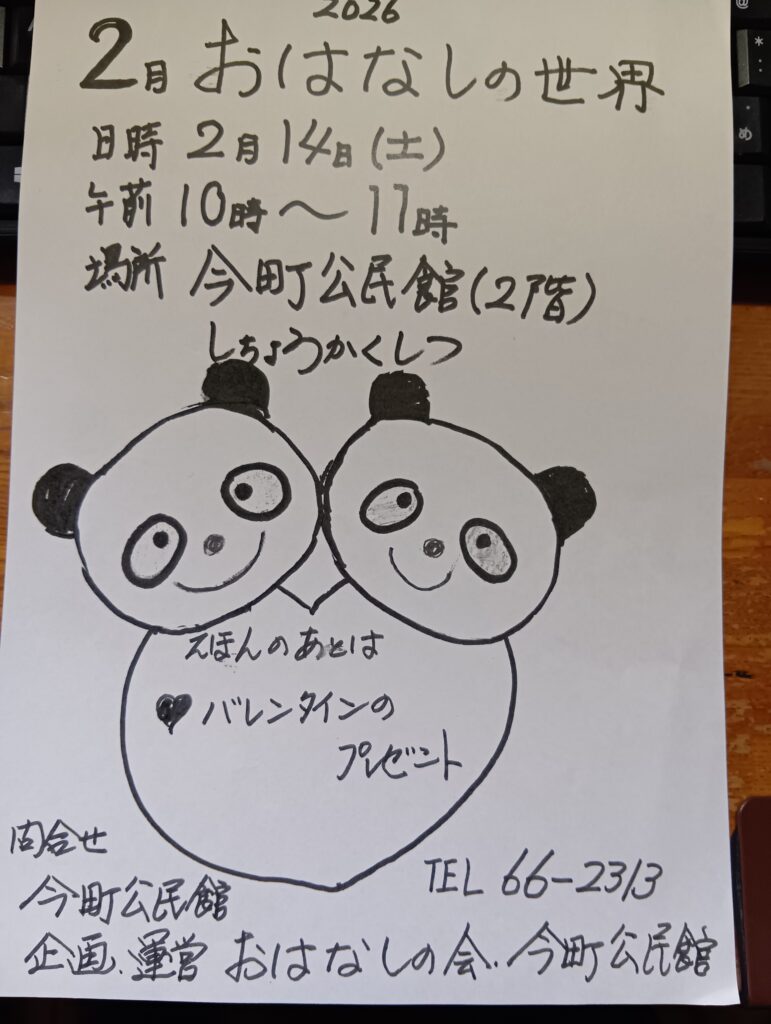 2026
2月 おはなしの世界
日時 2月14日(土)
午前 10時〜11時
場所 今町公民館(2階)
しちょうかくしつ
えほんのあとは
♥バレンタインの
プレゼント
問合せ
今町公民館
TEL 66-2313
企画、運営 おはなしの会、今町公民館